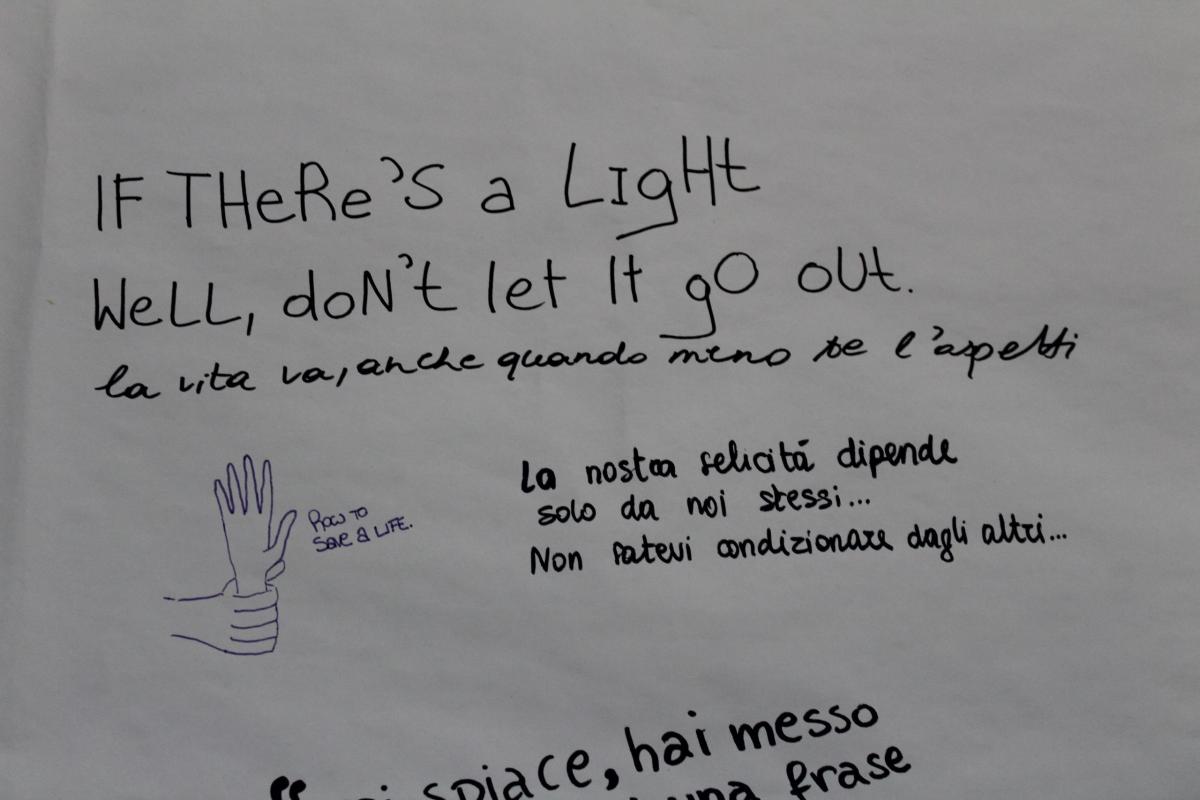 IF THeRe'S a LIgHt
WeLL, doN't let It gO oUt.
la vita va, anche quando meno te l'aspetti
HOW TO
SAVE A LIFE.
La nostra felicitá dipende
solo da noi stessi...
Non fatevi condizionare dagli altri...
spiace, hai messo
una frase